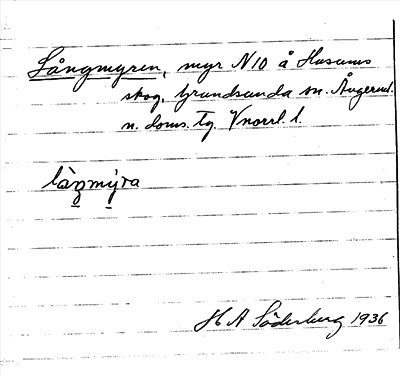 Långmyren, myr N10 å Husums
skog, Grundsunda sn. Ångerml.
n. doms. tg. Vnorrl. l.
làŋmỳra
H A Söderberg 1936